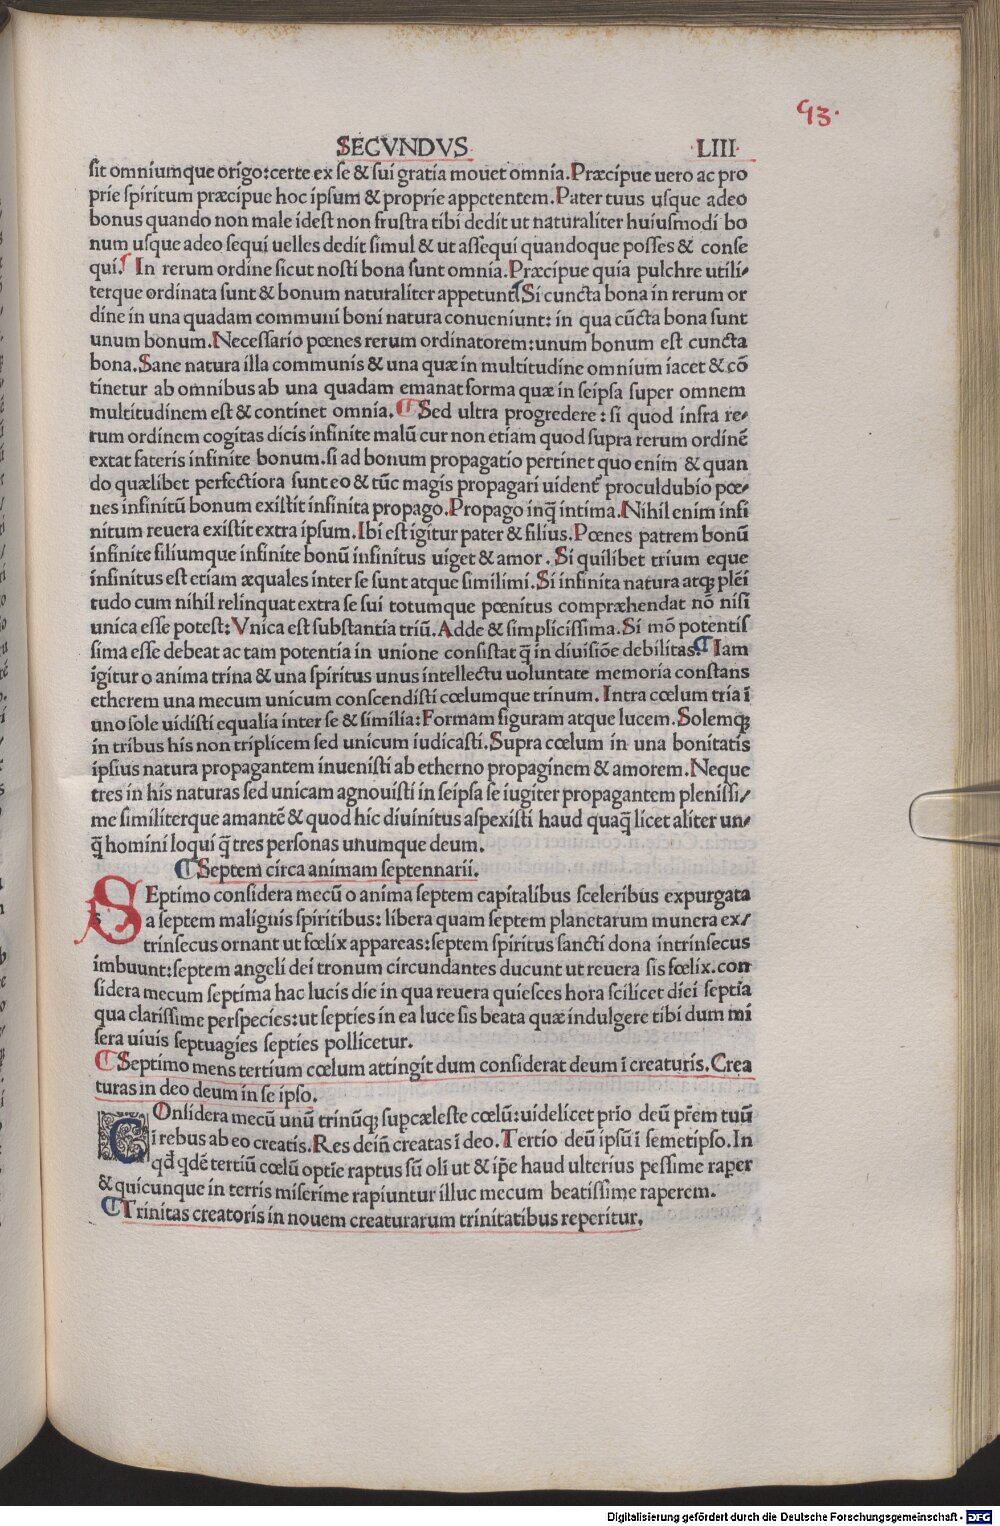 93.
SECVNDVS LIII
sit omniumque origo:certe ex se & sui gratia mouet omnia.Præcipue uero ac pro
prie spiritum præcipue hoc ipsum & proprie appetentem.Pater tuus usque adeo
bonus quando non male idest non frustra tibi dedit ut naturaliter huiusmodi bo
num usque adeo sequi uelles dedit simul & ut assequi quandoque posses & conse
qui.¶ In rerum ordine sicut nosti bona sunt omnia.Præcipue quia pulchre utili-
terque ordinata sunt & bonum naturaliter appetunt¶Si cuncta bona in rerum or
dine in una quadam communi boni natura conueniunt: in qua cũcta bona sunt
unum bonum.Necessario pœnes rerum ordinatorem:unum bonum est cuncta
bona.Sane natura illa communis & una quæ in multitudine omnium iacet & cõ
tinetur ab omnibus ab una quadam emanat forma quæ in seipsa super omnem
multitudinem est & continet omnia.¶Sed ultra progredere: si quod infra re-
rum ordinem cogitas dicis infinite malũ cur non etiam quod supra rerum ordinẽ
extat fateris infinite bonum.si ad bonum propagatio pertinet quo enim & quan
do quælibet perfectiora sunt eo & tũc magis propagari uident᷑ proculdubio pœ-
nes infinitũ bonum existit infinita propago.Propago inq̃ intima.Nihil enim infi
nitum reuera existit extra ipsum.Ibi est igitur pater & filius.Pœnes patrem bonũ
infinite filiumque infinite bonũ infinitus uiget & amor. Si quilibet trium eque
infinitus est etiam æquales inter se sunt atque simillimi.Si infinita natura atqꝫ plẽi
tudo cum nihil relinquat extra se sui totumque pœnitus compræhendat nõ nisi
unica esse potest:Vnica est substantia triũ.Adde & simplicissima.Si mõ potentis
sima esse debeat ac tam potentia in unione consistat q̃ in diuisiõe debilitas.¶Iam
igitur o anima trina & una spiritus unus intellectu uoluntate memoria constans
etherem una mecum unicum conscendisti cœlumque trinum. Intra cœlum tria ĩ
uno sole uidisti equalia inter se & similia:Formam figuram atque lucem.Solemqꝫ
in tribus his non triplicem sed unicum iudicasti.Supra cœlum in una bonitatis
ipsius natura propagantem inuenisti ab etherno propaginem & amorem.Neque
tres in his naturas sed unicam agnouisti in seipsa se iugiter propagantem plenissi-
me similiterque amantẽ & quod hic diuinitus aspexisti haud quaq̃ licet aliter un-
q̃ homini loqui q̃ tres personas unumque deum.
¶Septem circa animam septennarii.
SEptimo considera mecũ o anima septem capitalibus sceleribus expurgata
a septem malignis spiritibus: libera quam septem planetarum munera ex-
trinsecus ornant ut fœlix appareas:septem spiritus sancti dona intrinsecus
imbuunt:septem angeli dei tronum circundantes ducunt ut reuera sis fœlix.con
sidera mecum septima hac lucis die in qua reuera quiesces hora scilicet diei septĩa
qua clarissime perspecies:ut septies in ea luce sis beata quæ indulgere tibi dum mi
sera uiuis septuagies septies pollicetur.
¶Septimo mens tertium cœlum attingit dum considerat deum ĩ creaturis.Crea
turas in deo deum in se ipso.
COnsidera mecũ unũ trinũqꝫ suꝑcæleste cœlũ:uidelicet prĩo deũ pr̃em tuũ
ĩ rebus ab eo creatis.Res deiñ creatas ĩ deo.Tertio deũ ipsũ ĩ semetipso.In
qđ qdẽ tertiũ cœlũ optĩe raptus sũ oli ut & ip̃e haud ulterius pessime raper
& quicunque in terris miserime rapiuntur illuc mecum beatissime raperem.
¶Trinitas creatoris in nouem creaturarum trinitatibus reperitur.
Digitalisierung gefördert durch die Deutsche Forschungsgemeinschaft - DFG